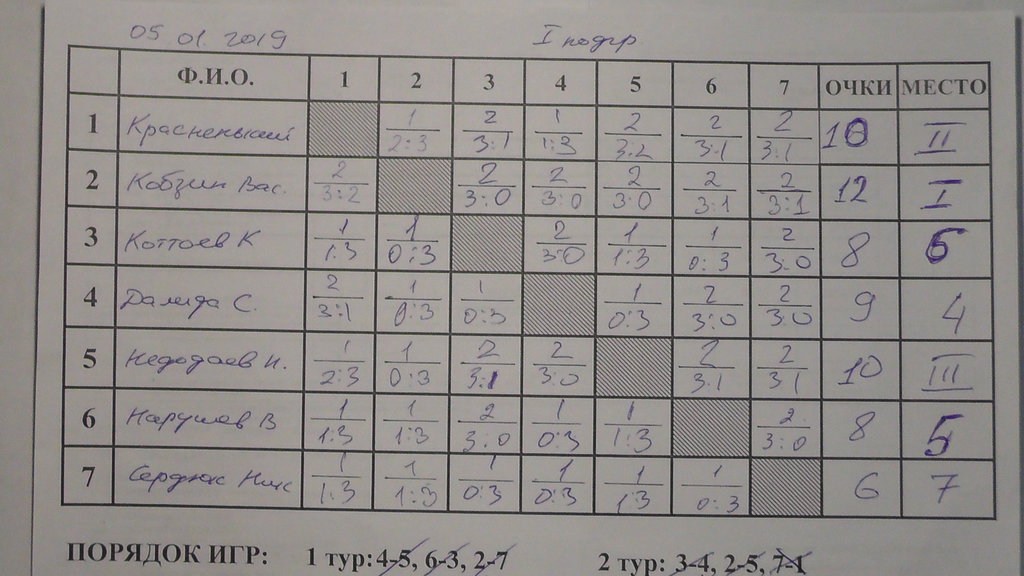 05.01.2019 I подгр
Ф.И.О. 1 2 3 4 5 6 7 ОЧКИ МЕСТО
1 Красненький 1 2:3 2 3:1 1 1:3 2 3:2 2 3:1 2 3:1 10 II
2 Кобзин Вас. 2 3:2 2 3:0 2 3:0 2 3:0 2 3:1 2 3:1 12 I
3 Коттаев К 1 1:3 1 0:3 2 3:0 1 1:3 1 0:3 2 3:0 8 6
4 Далида С. 2 3:1 1 0:3 1 0:3 1 0:3 2 3:0 2 3:0 9 4
5 Недодаев Н. 1 2:3 1 0:3 2 3:1 2 3:0 2 3:1 2 3:1 10 III
6 Нарушев В 1 1:3 1 1:3 2 3:0 1 0:3 1 1:3 2 3:0 8 5
7 Сердюк Ник 1 1:3 1 1:3 1 0:3 1 0:3 1 1:3 1 0:3 6 7
ПОРЯДОК ИГР: 1 тур: 4-5, 6-3, 2-7 2 тур: 3-4, 2-5, 7-1